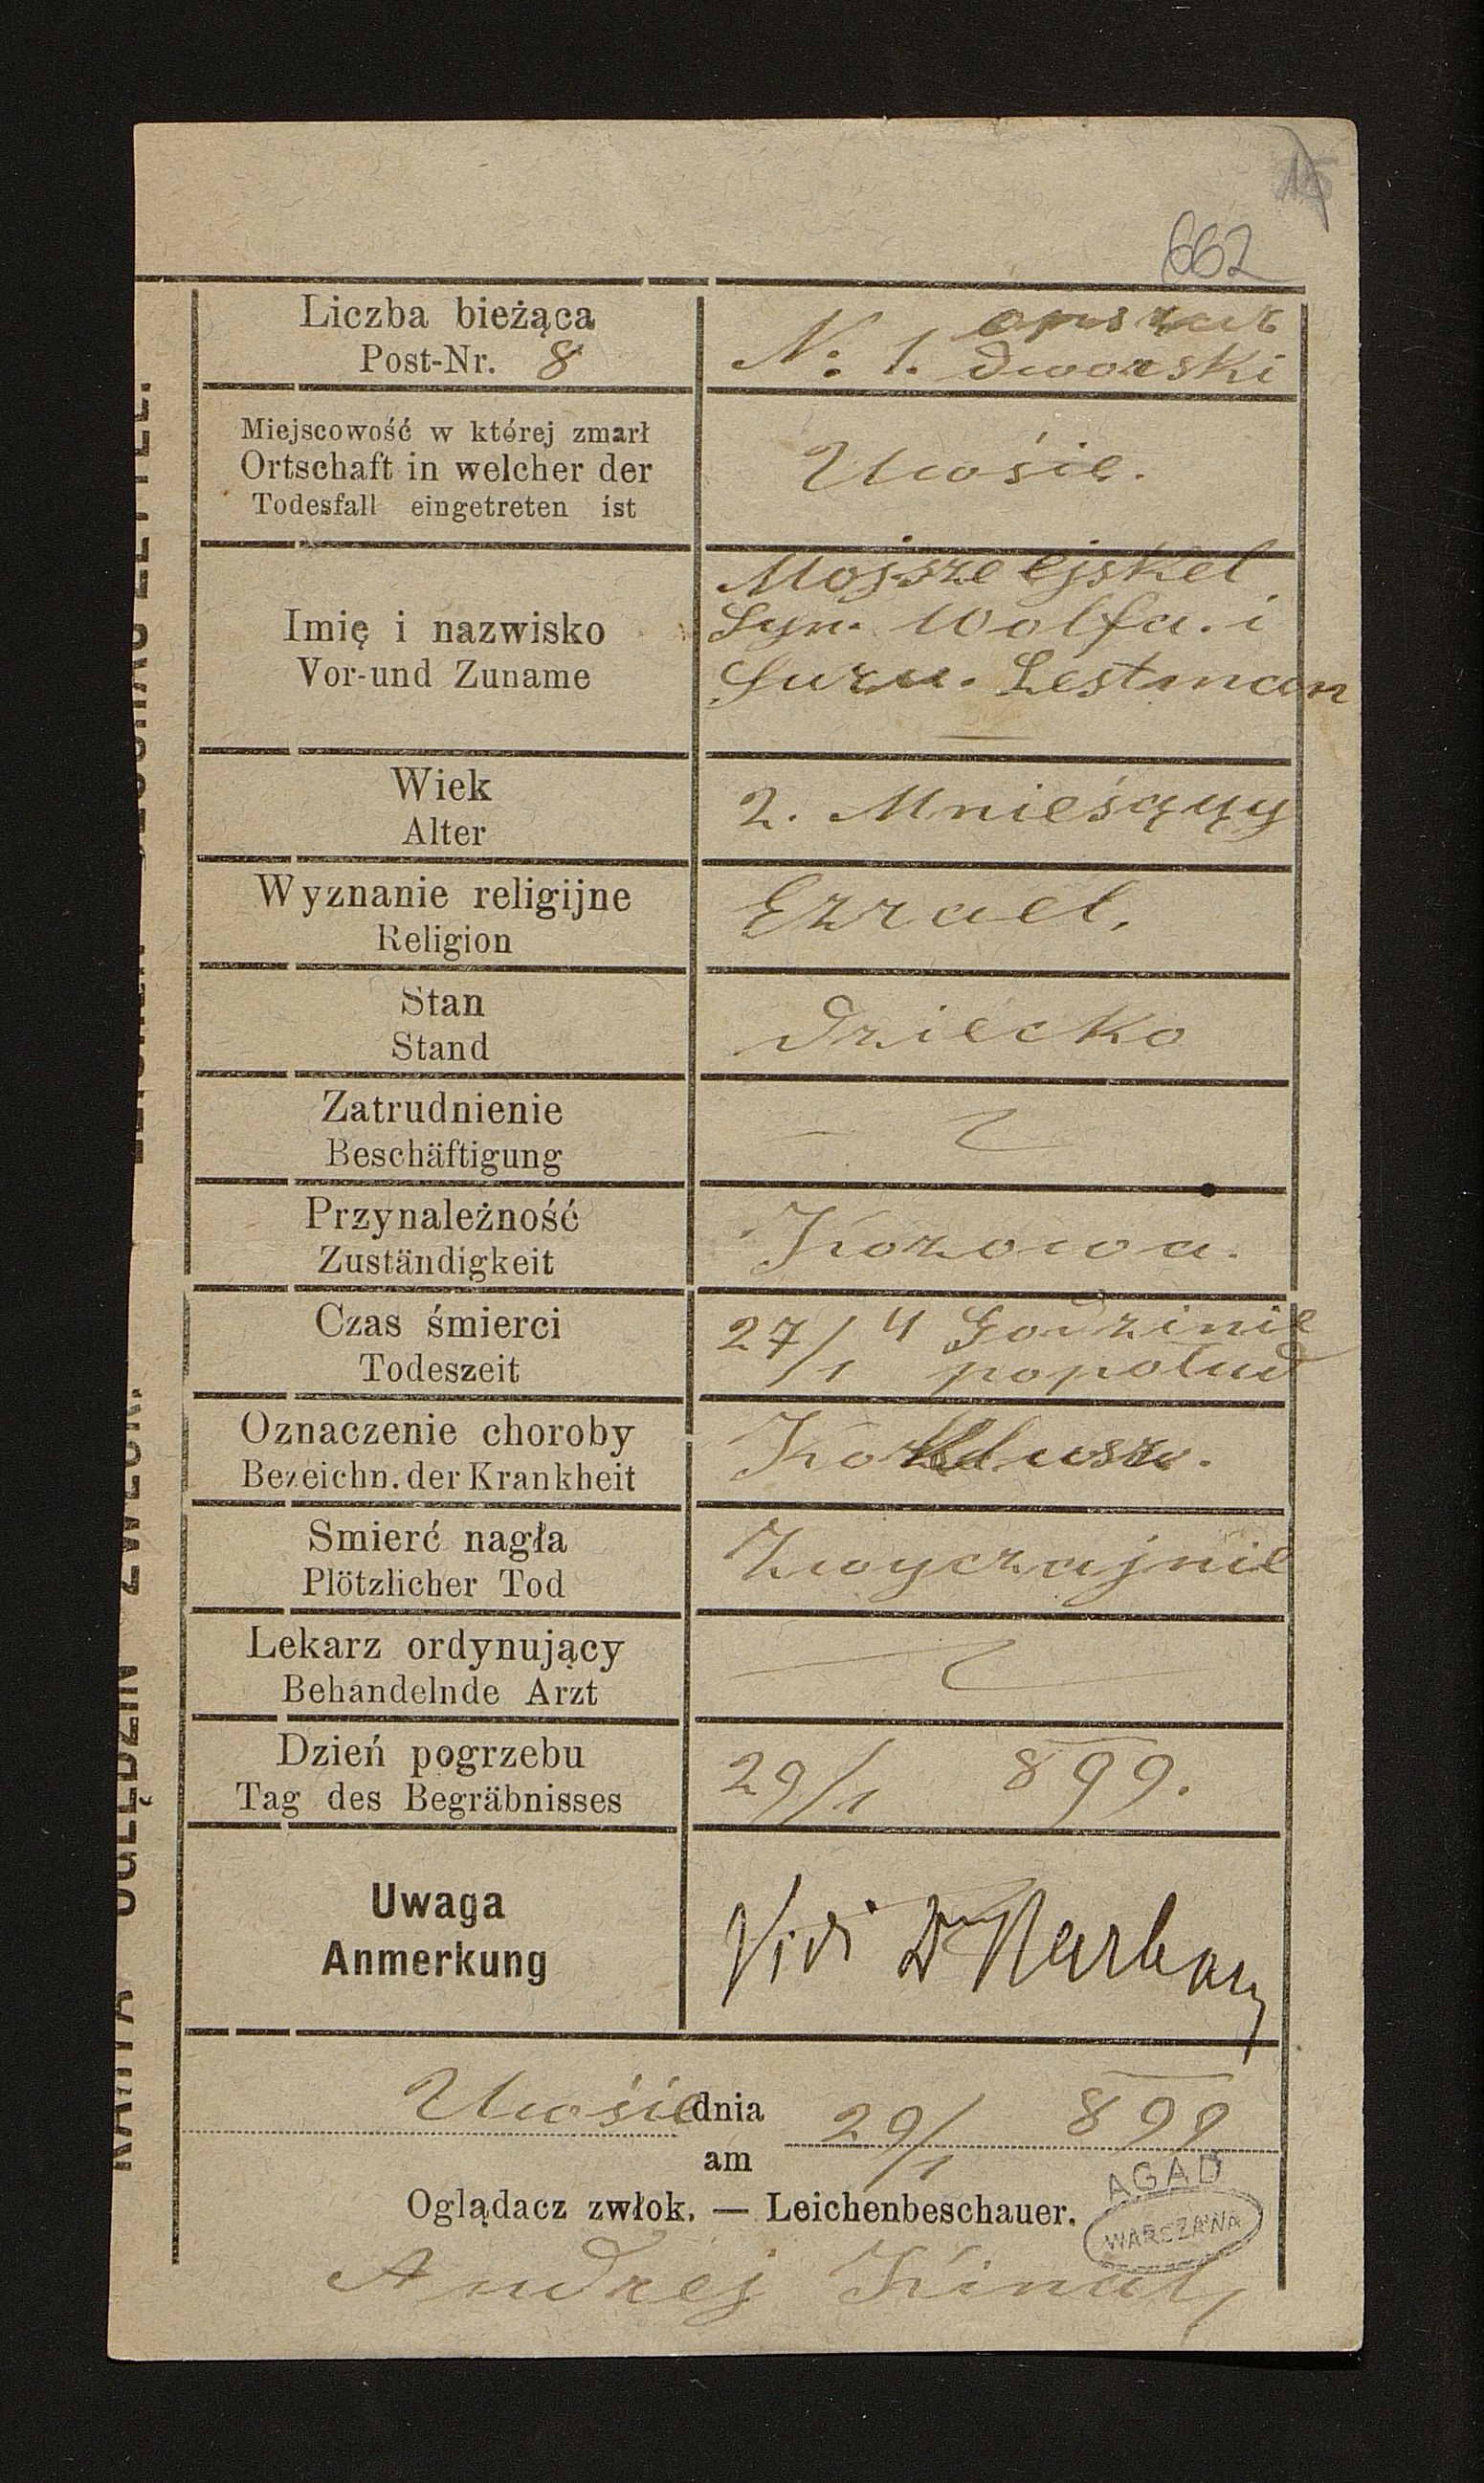 662
Liczba bieżąca
Post-Nr. 8
N: 1. opszar
dworski
Miejscowość w której zmarł
Ortschaft in welcher der
Todesfall eingetreten ist
Uwsie.
Imię i nazwisko
Vor-und Zuname
Mojsze Ejskel
Syn. Wolfa. i
Sury. Lestman
Wiek
Alter
2. Mnieśąyy
Wyznanie religijne
Religion
Ezrael.
Stan
Stand
dziecko
Zatrudnienie
Beschäftigung
Przynależność
Zuständigkeit
Kozowa.
Czas śmierci
Todeszeit
27/1 4 Godzinie
popołud
Oznaczenie choroby
Bezeichn. der Krankheit
Smierć nagła
Plötzlicher Tod
Zwyczajnie
Lekarz ordynujący
Behandelnde Arzt
Dzień pogrzebu
Tag des Begräbnisses
29/1 899.
Uwaga
Anmerkung
Vidi Dr
dnia
am
29/1 899
Oglądacz zwłok. — Leichenbeschauer.
AGAD
WARSZAWA
Andrej
KARTA OGLĘDZIN ZWŁOK.